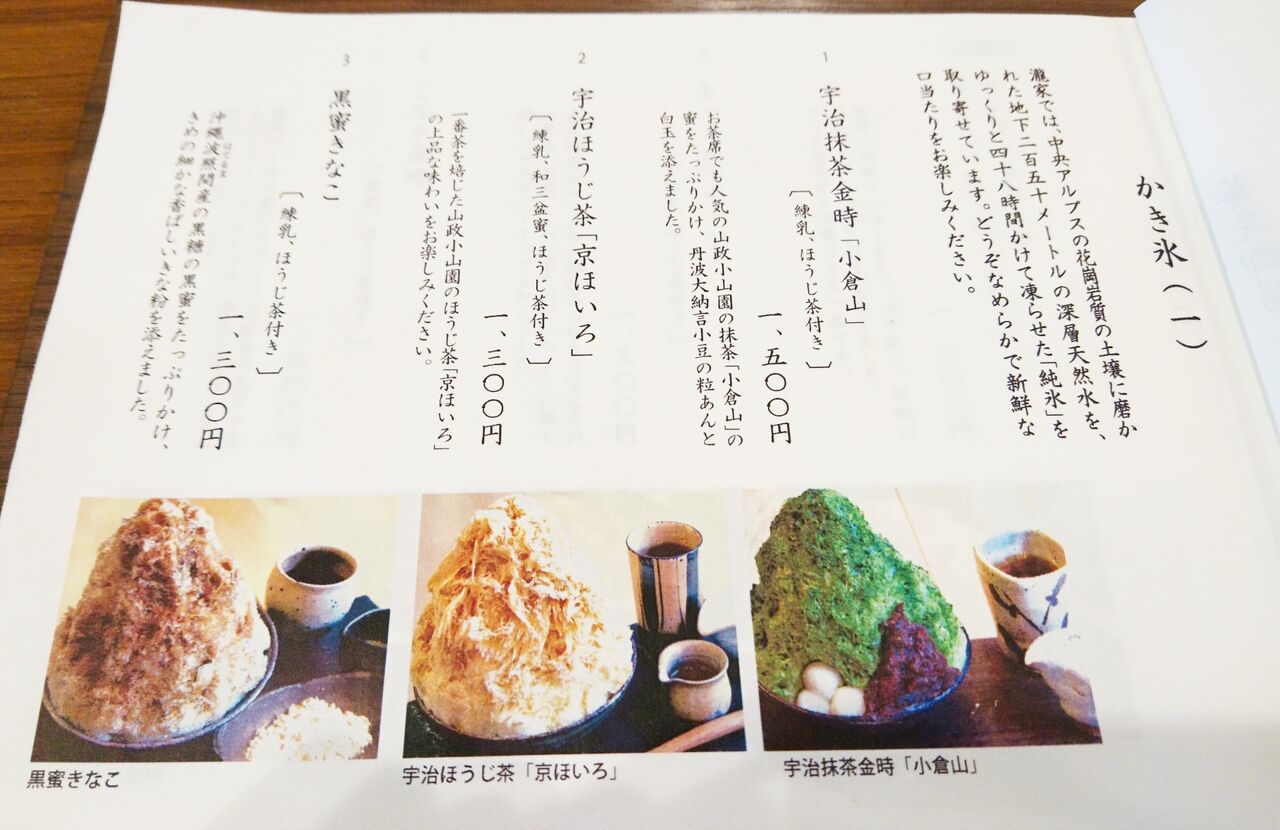 かき氷（一）
瀧家では、中央アルプスの花崗岩質の土壌に磨か
れた地下二百五十メートルの深層天然水を、
ゆっくりと四十八時間かけて凍らせた「純氷」を
取り寄せています。どうぞなめらかで新鮮な
口当たりをお楽しみください。
1 宇治抹茶金時「小倉山」
〔練乳、ほうじ茶付き〕
一、五〇〇円
お茶席でも人気の山政小山園の抹茶「小倉山」の
蜜をたっぷりかけ、丹波大納言小豆の粒あんと
白玉を添えました。
2 宇治ほうじ茶「京ほいろ」
〔練乳、和三盆蜜、ほうじ茶付き〕
一、三〇〇円
一番茶を焙じた山政小山園のほうじ茶「京ほいろ」
の上品な味わいをお楽しみください。
3 黒蜜きなこ
〔練乳、ほうじ茶付き〕
一、三〇〇円
はてるま
沖縄波照間産の黒糖の黒蜜をたっぷりかけ、
きめの細かな香ばしいきな粉を添えました。
黒蜜きなこ
宇治ほうじ茶「京ほいろ」
宇治抹茶金時「小倉山」